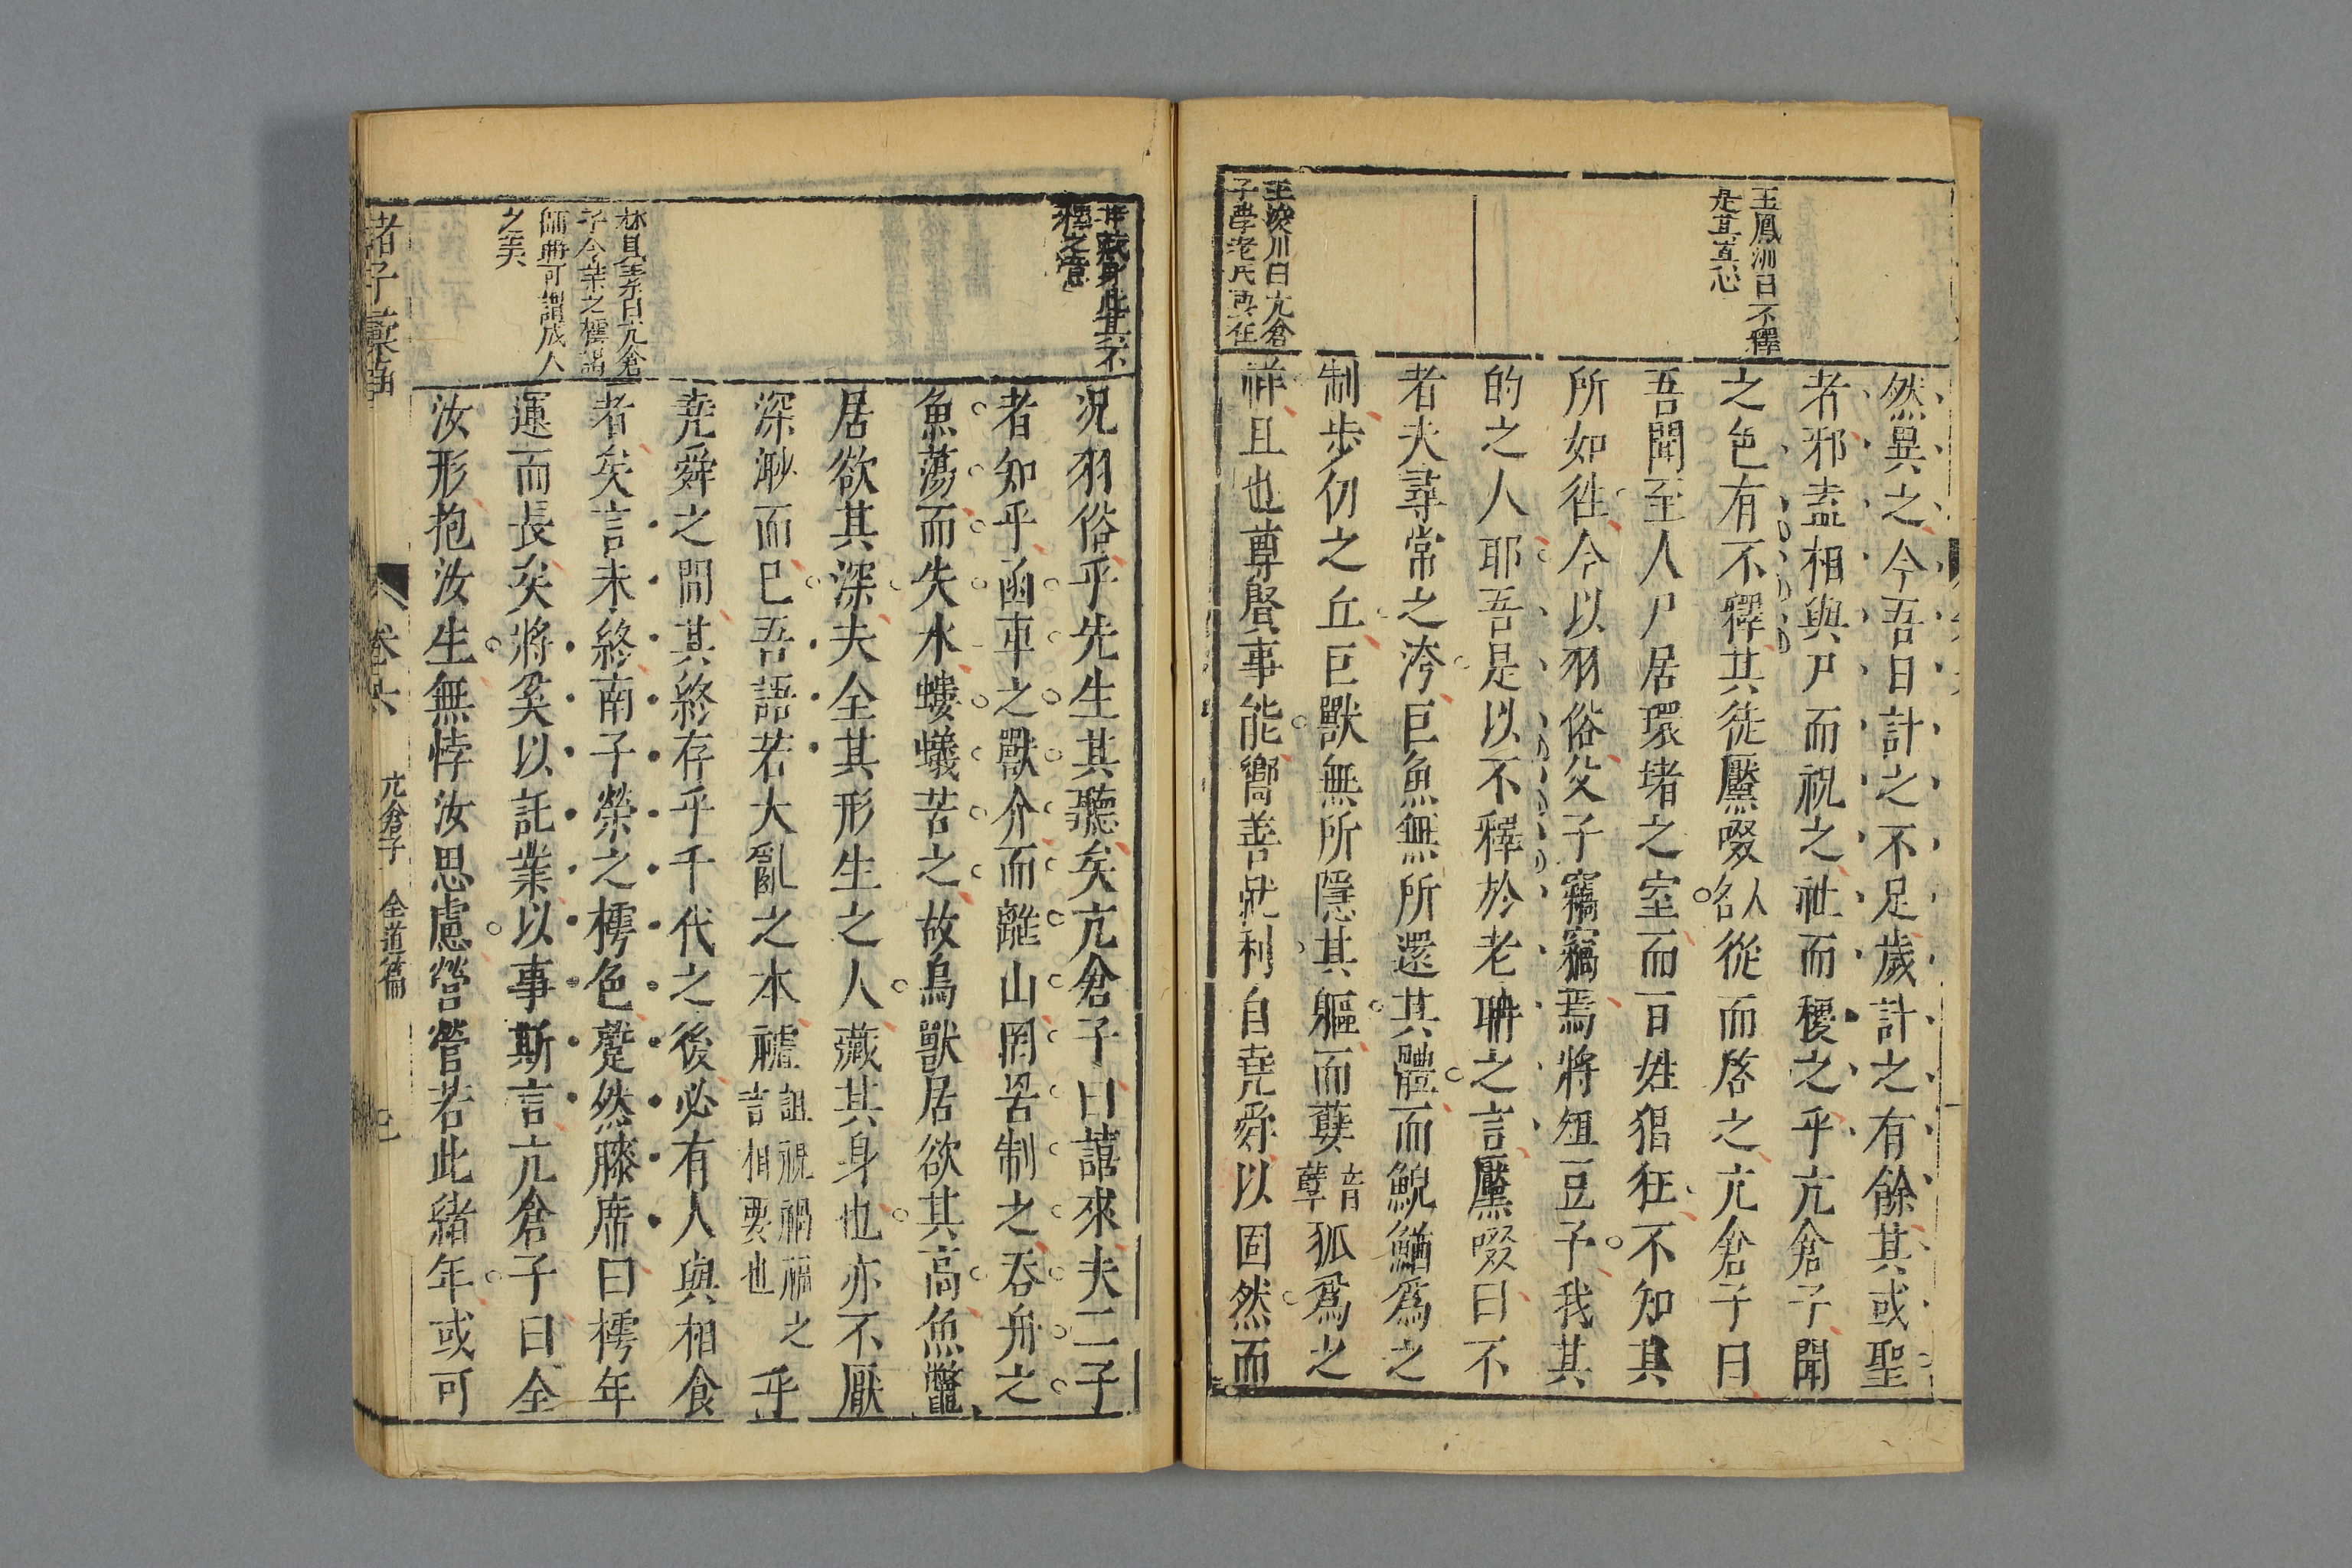 王鳳洲曰不釋
是其直心
王浚川曰亢倉
子學老氏再在
然異之今吾日計之不足歲計之有餘其或聖
者邪盍相與尸而祝之社而稷之乎亢倉子聞
之色有不釋其徒䵝啜從而啓之亢倉子曰
吾聞至人尸居環堵之室而百姓猖狂不知其
所如徃今以羽俗父子竊竊焉將俎豆予我其
的之人耶吾是以不釋於老聃之言䵝啜曰不
者夫尋常之洿巨魚無所還其體而鯢鰌爲之
制步仞之丘巨獸無所隱其軀而㜸音孽狐爲之
祥且也尊賢事能嚮善就利自堯舜以固然而
况羽俗乎先生其聽矣亢倉子曰譆來夫二子
者知乎函車之獸介而離山罔罟制之吞舟之
魚蕩而失水螻蟻苦之故鳥獸居欲其高魚鼈
居欲其深夫全其形生之人藏其身也亦不厭
深渺而已吾語若大亂之本䄏詛祝禍福之言相要也乎
堯舜之間其終存乎千代之後必有人與相食
者矣言未終南子榮之樗色蹵然膝席曰樗年
運而長矣將奚以託業以事斯言亢倉子曰全
汝形抱汝生無悖汝思慮營營若此緒年或可
子今業之樗謁
師冊可謂成人
之美
諸子彙函
卷六
亢倉子 全道篇